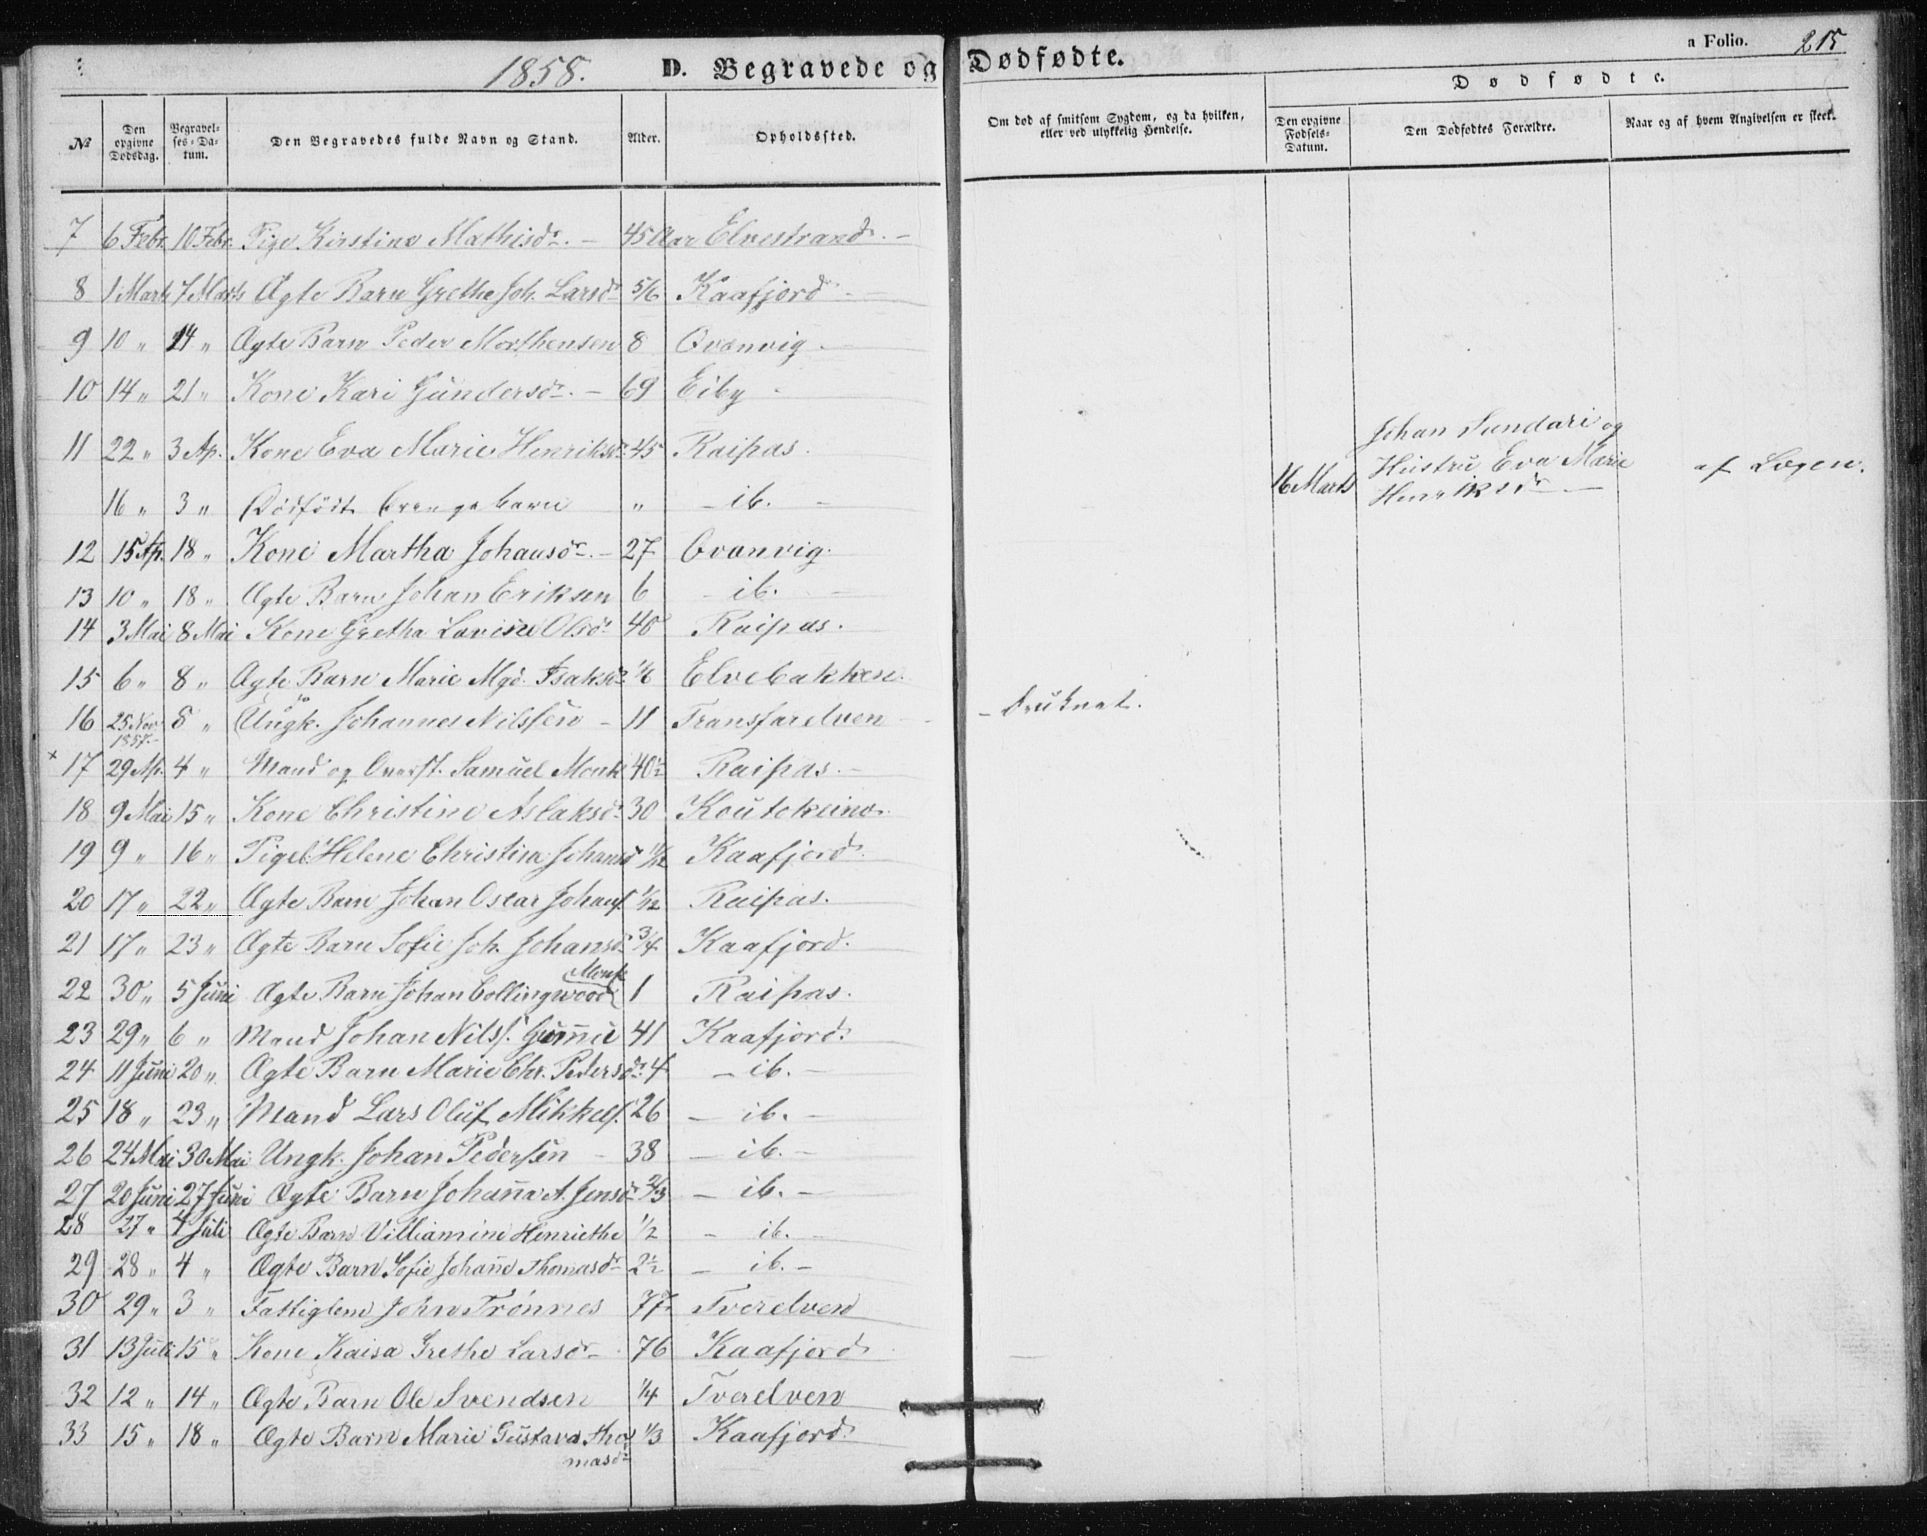 1858. D. Begravede og Dødfødte. n Folio. 215
Dødfødte.
№ Den opgivne Dødsdag. Begravelses-Datum. Den Begravedes fulde Navn og Stand. Alder. Opholdssted. Om død af smitsom Sygdom, og da hvilken, eller ved ulykkelig Hendelse. Den opgivne Fødsels-Datum. Den Dødfødtes Forældre. Naar og af hvem Angivelsen er skeet.
7 6 Febr. 10 Febr. Pige Kirstine Mathisdr. - 45 Aar Elvestrand. -
8 1 Marts 7 Marts Ægte Barn Grethe Joh. Larsdr 5/6 Kaafjord -
9 10 „ 14 „ Ægte Barn Peder Morthensen 8 Qvænvig.
10 14 „ 21 „ Kone Kari Gundersdr. - 69 Eiby
11 22 „ 3 Ap. Kone Eva Marie Henriksdr 45 Raipas.
16 „ 3 „ Dødfødt Drengebarn „ - ib. - 16 Marts Johan Sundari og Hustru Eva Marie Henriksdr - af Lægen.
12 15 Ap. 18 „ Kone Martha Johansdr. - 27 Qvænvig.
13 10 „ 18 „ Ægte Barn Johan Eriksen 6 - ib. -
14 3 Mai 8 Mai Kone Gretha Lovise Olsdr 40 Raipas.
15 6 „ 8 „ Ægte Barn Marie Mgd. Isaksdr 1/6 Elvebakken.
16 25 Nov 1857. 8 „ Ungk. Johannes Nilssen - 11 Transfarelven - - Druknet.
× 17 29 Ap. 4 „ Mand og Overst. Samuel Monk 40½ Raipas. -
18 9 Mai 15 „ Kone Christine Aslaksdr 30 Koutokeino.
19 9 „ 16 „ Pigeb. Helene Christina Johansd 11/12 Kaafjord.
20 17 „ 22 „ Ægte Barn Johan Oscar Johans. 1/12 Raipas.
21 17 „ 23 „ Ægte Barn Sofie Joh. Johansdr 3/4 Kaafjord.
22 30 „ 5 Juni Ægte Barn Johan Collingwood Monk 1 Raipas.
23 29 „ 6 „ Mand Johan Nilss. 41 Kaafjord.
24 11 Juni 20 „ Ægte Barn Marie Chr. Pedersdr 4 - ib. -
25 18 „ 23 „ Mand Lars Oluf Mikkels. 26 - ib. -
26 24 Mai 30 Mai Ungk. Johan Pedersen - 38 - ib. -
27 20 Juni 27 Juni Ægte Barn Johanna A. Jensdr 2/3 - ib. -
28 27 „ 4 Juli Ægte Barn Villiamine Henriethe 1/2 - ib. -
29 28 „ 4 „ Ægte Barn Sofie Johanne Thomasdr 2½ - ib. -
30 29 „ 3 „ Fattiglem John Trönnes 77 Tverelven
31 13 Juli 15 „ Kone Kaisa Grethe Larsdr - 76 Kaafjord
32 12 „ 14 „ Ægte Barn Ole Svendsen 1/4 Tverelven
33 15 „ 18 „ Ægte Barn Marie Gustava Thomasdr 1/3 Kaafjord.